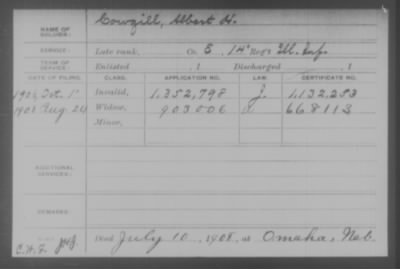 NAME OF SOLDIER: Cowgill, Albert H.
SERVICE: Late rank, Co. E, 14" Reg't Ill. Inf.
TERM OF SERVICE: Enlisted , 1 Discharged , 1
DATE OF FILING. CLASS. APPLICATION NO. LAW. CERTIFICATE NO.
Invalid, 1,352,798 J. 1,132,253
1908 Aug 24 Widow, 903006 668113
Minor,
ADDITIONAL SERVICES:
REMARKS:
Died July 10, 1908, at Omaha, Neb.